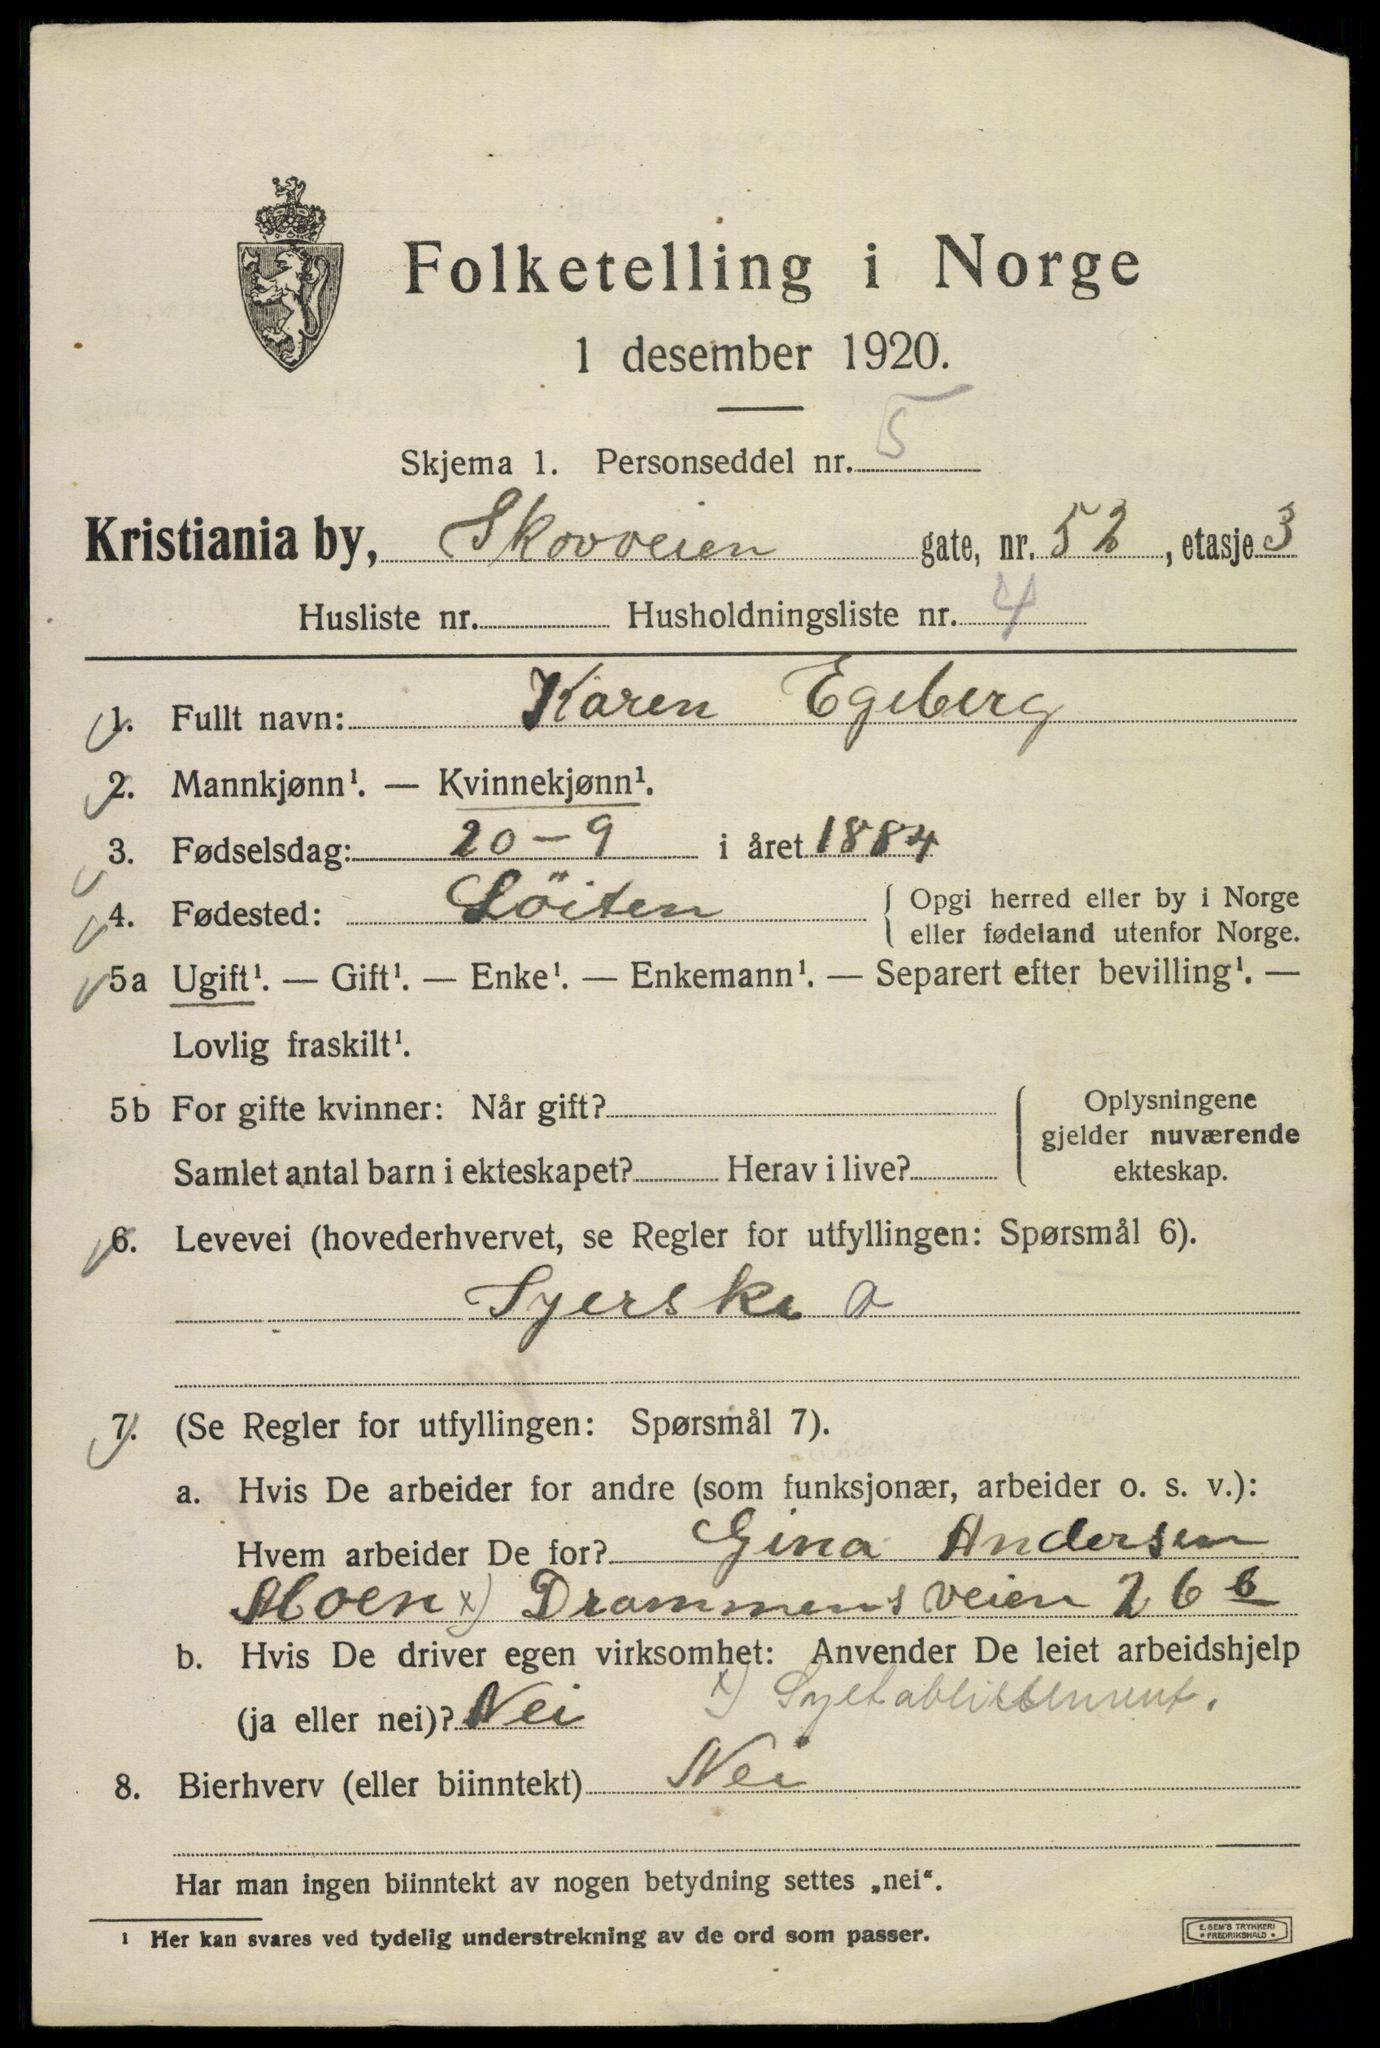 Folketelling i Norge
1 desember 1920.
Skjema 1. Personseddel nr. 5
Kristiania by, Skovveien gate, nr. 52, etasje 3
Husliste nr. Husholdningsliste nr. 4
1. Fullt navn: Karen Egeberg
2. Mannkjønn¹. — Kvinnekjønn¹.
3. Fødselsdag: 20-9 i året 1884
4. Fødested: Löiten { Opgi herred eller by i Norge
eller fødeland utenfor Norge.
5a Ugift¹. — Gift¹. — Enke¹. — Enkemann¹. — Separert efter bevilling¹. —
Lovlig fraskilt¹.
5b For gifte kvinner: Når gift? { Oplysningene
gjelder nuværende
Samlet antal barn i ekteskapet? Herav i live? ekteskap.
6. Levevei (hovederhvervet, se Regler for utfyllingen: Spørsmål 6).
Syerske a
7. (Se Regler for utfyllingen: Spørsmål 7).
a. Hvis De arbeider for andre (som funksjonær, arbeider o. s. v.):
Hvem arbeider De for? Gina Andersen
Moen x) Drammensveien 26 b
b. Hvis De driver egen virksomhet: Anvender De leiet arbeidshjelp
(ja eller nei)? Nei x) Syetablissement.
8. Bierhverv (eller biinntekt) Nei
Har man ingen biinntekt av nogen betydning settes „nei“.
¹ Her kan svares ved tydelig understrekning av de ord som passer.
E. SEM'S TRYKKERI
* FREDRIKSHALD *